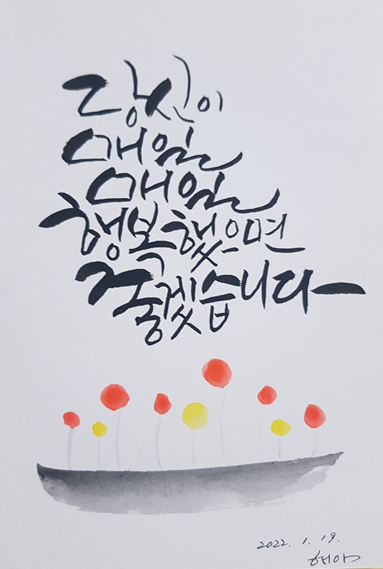 당신이
매일
매일
행복했으면
좋겠습니다
2022. 1. 19.